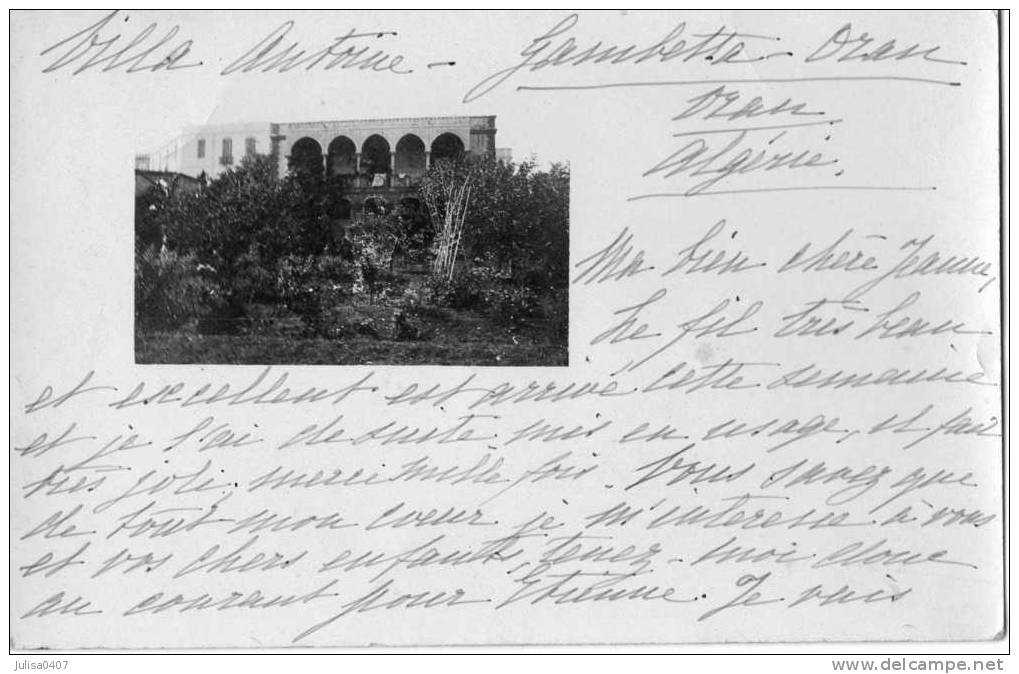 Villa Antoine - Gambetta - Oran
Oran
Algérie.
Ma bien chère Jeanne,
Le fil très beau
et excellent est arrivé cette semaine
et je l'ai de suite mis en usage, il fait
très joli, merci mille fois. Vous savez que
de tout mon cœur je m'intéresse à vous
et vos chers enfants, tenez-moi donc
au courant pour Etienne. Je vais
julisa0407
www.delcampe.net